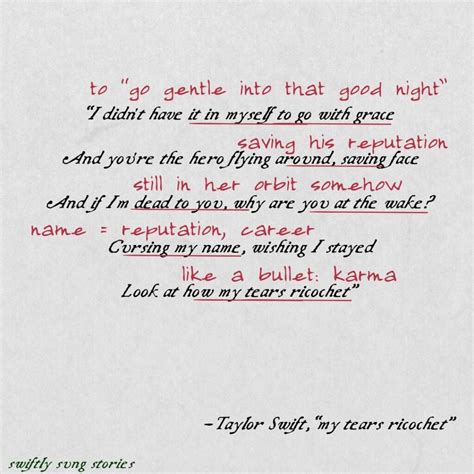 to "go gentle into that good night"
"I didn't have it in myself to go with grace
saving his reputation
And you're the hero flying around, saving face
still in her orbit somehow
And if I'm dead to you, why are you at the wake?
name = reputation, career
Cursing my name, wishing I stayed
like a bullet: karma
Look at how my tears ricochet"
-Taylor Swift, "my tears ricochet"
swiftly sung stories